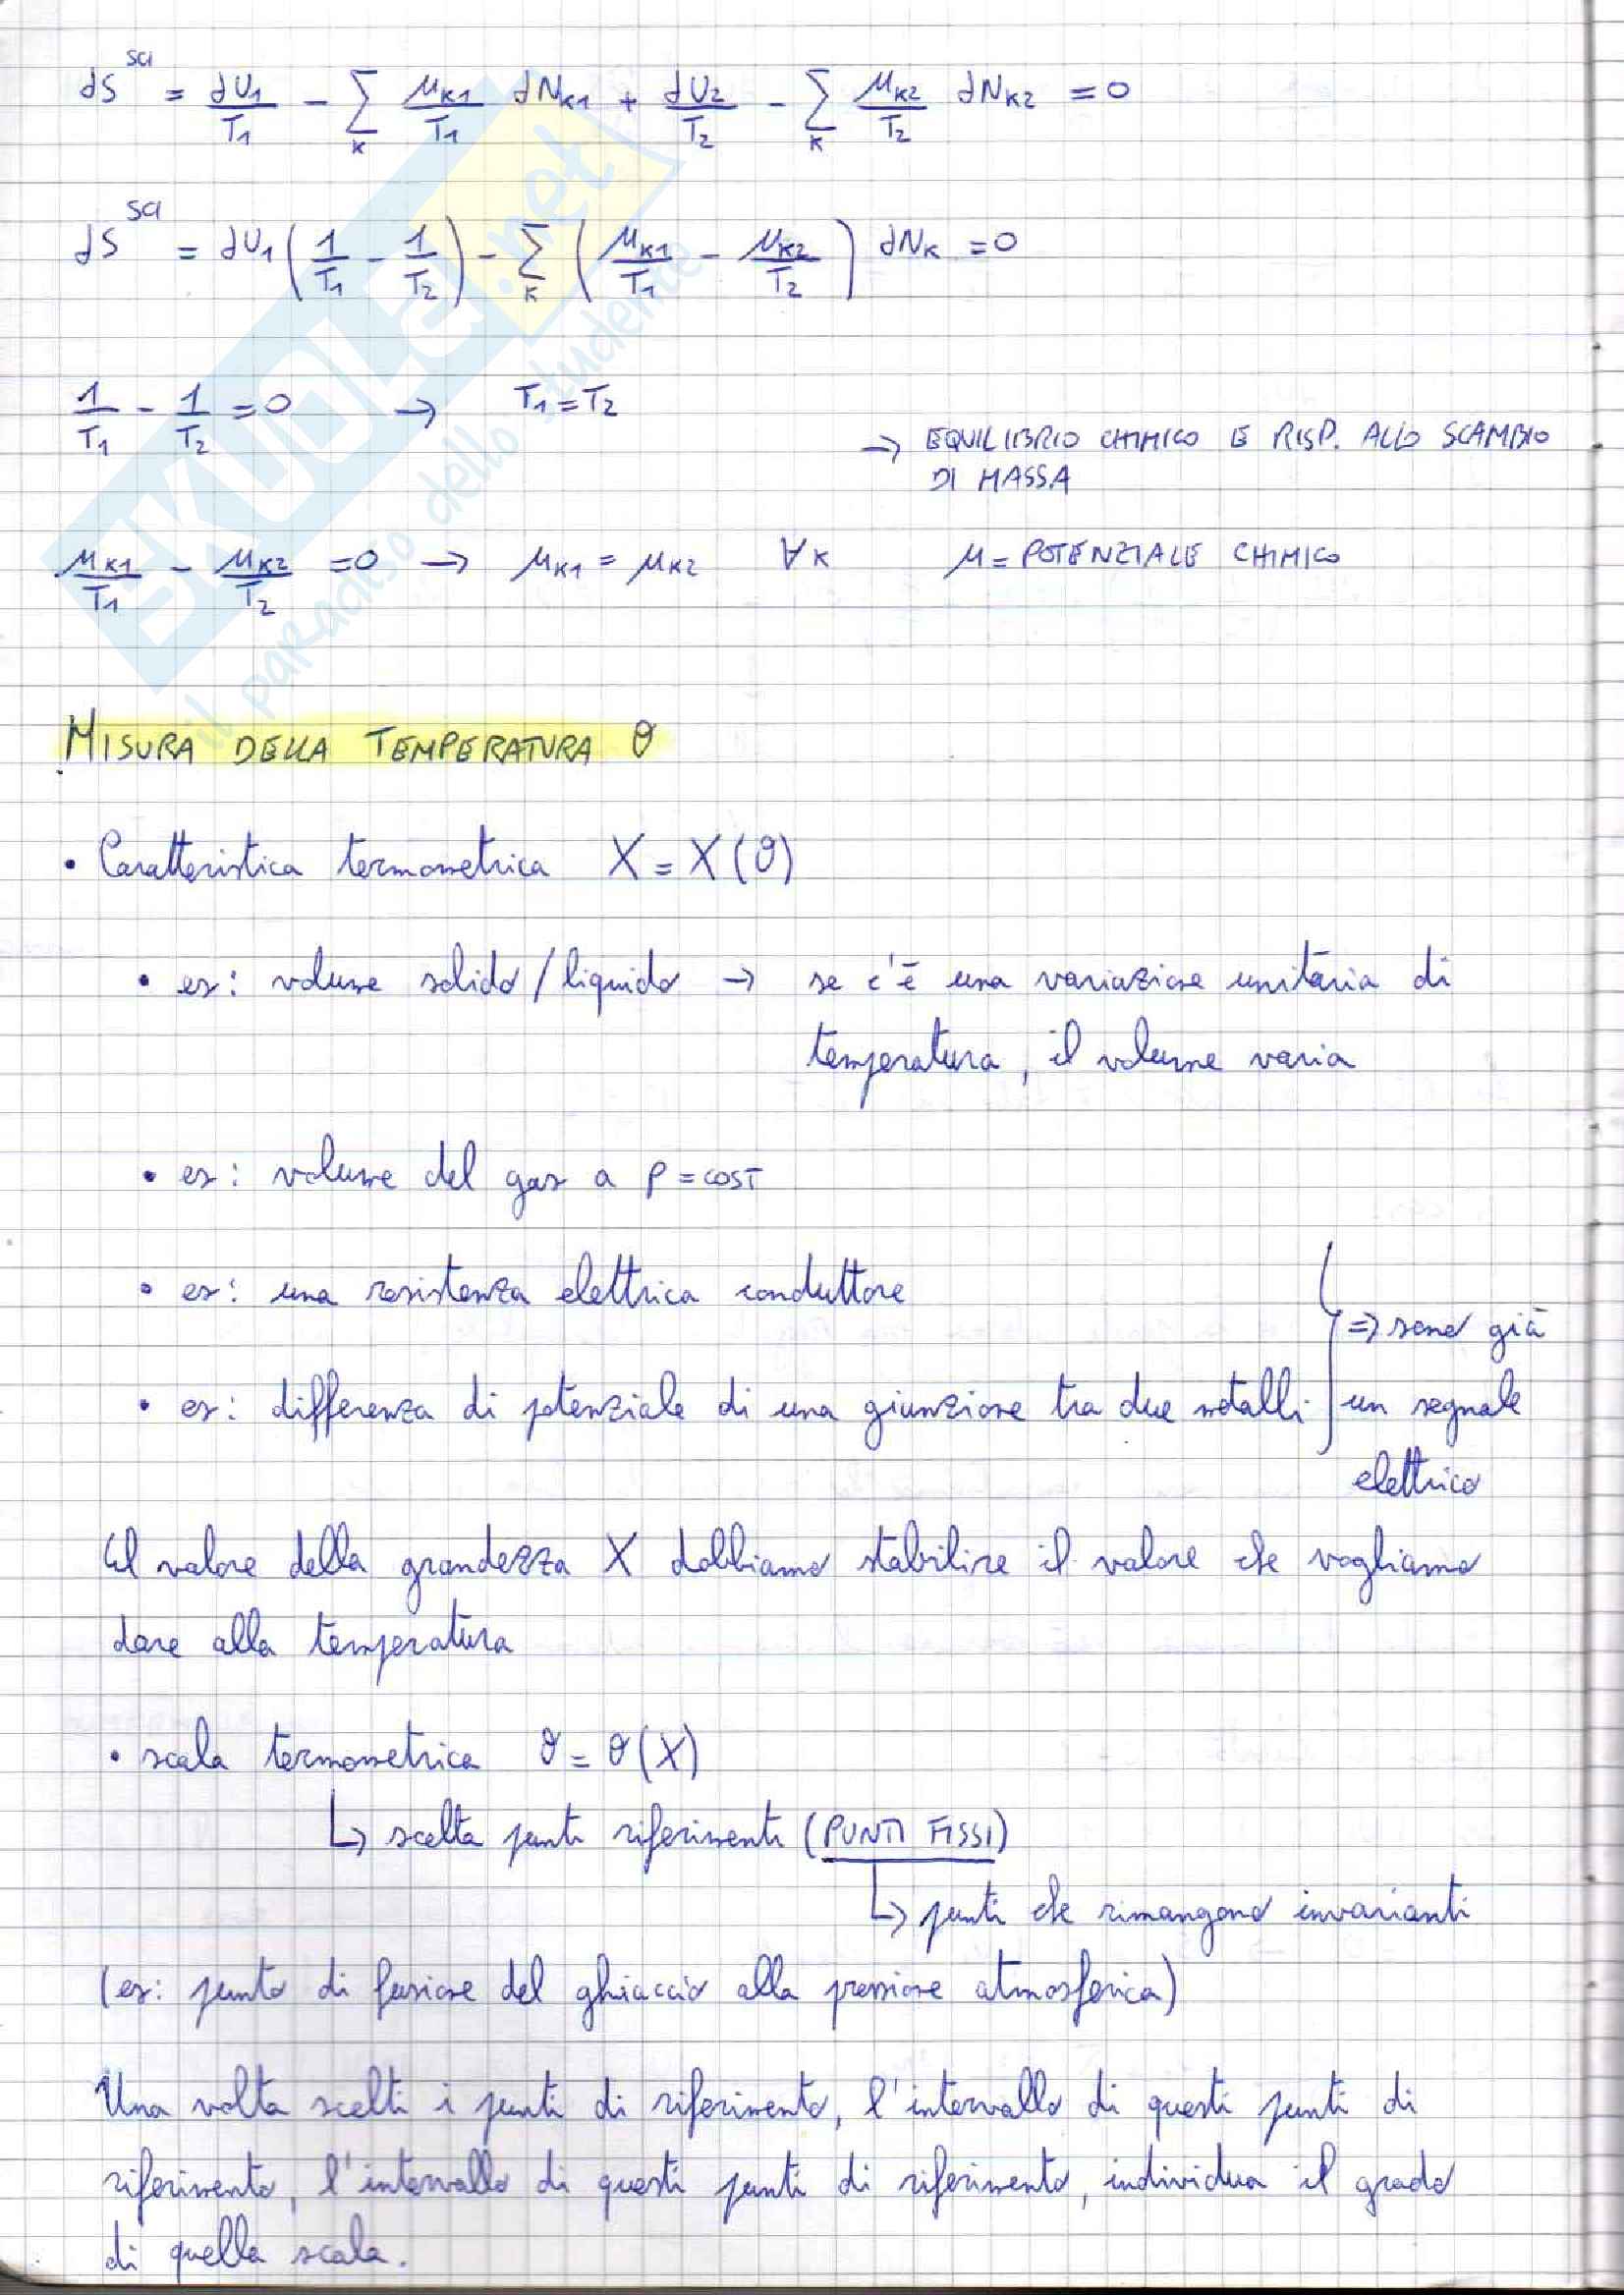 dS^sci = dU1/T1 - Σ_K μK1/T1 dNK1 + dU2/T2 - Σ_K μK2/T2 dNK2 = 0
dS^sci = dU1 (1/T1 - 1/T2) - Σ_K (μK1/T1 - μK2/T2) dNK = 0
1/T1 - 1/T2 = 0 → T1 = T2
→ EQUILIBRIO CHIMICO E RISP. ALLO SCAMBIO
DI MASSA
μK1/T1 - μK2/T2 = 0 → μK1 = μK2 ∀K μ = POTENZIALE CHIMICO
MISURA DELLA TEMPERATURA ϑ
• Caratteristica termometrica X = X(ϑ)
• es: volume solido/liquido → se c'è una variazione unitaria di
temperatura, il volume varia
• es: volume del gas a P = COST
• es: una resistenza elettrica conduttore
• es: differenza di potenziale di una giunzione tra due metalli
⇒ sono già
un segnale
elettrico
Il valore della grandezza X dobbiamo stabilire il valore che vogliamo
dare alla temperatura
• scala termometrica ϑ = ϑ(X)
↳ scelta punti riferimenti (PUNTI FISSI)
↳ punti che rimangono invarianti
(es: punto di fusione del ghiaccio alla pressione atmosferica)
Una volta scelti i punti di riferimento, l'intervallo di questi punti di
riferimento, l'intervallo di questi punti di riferimento, individua il grado
di quella scala.
SKUOLA.net
il paradiso dello studente